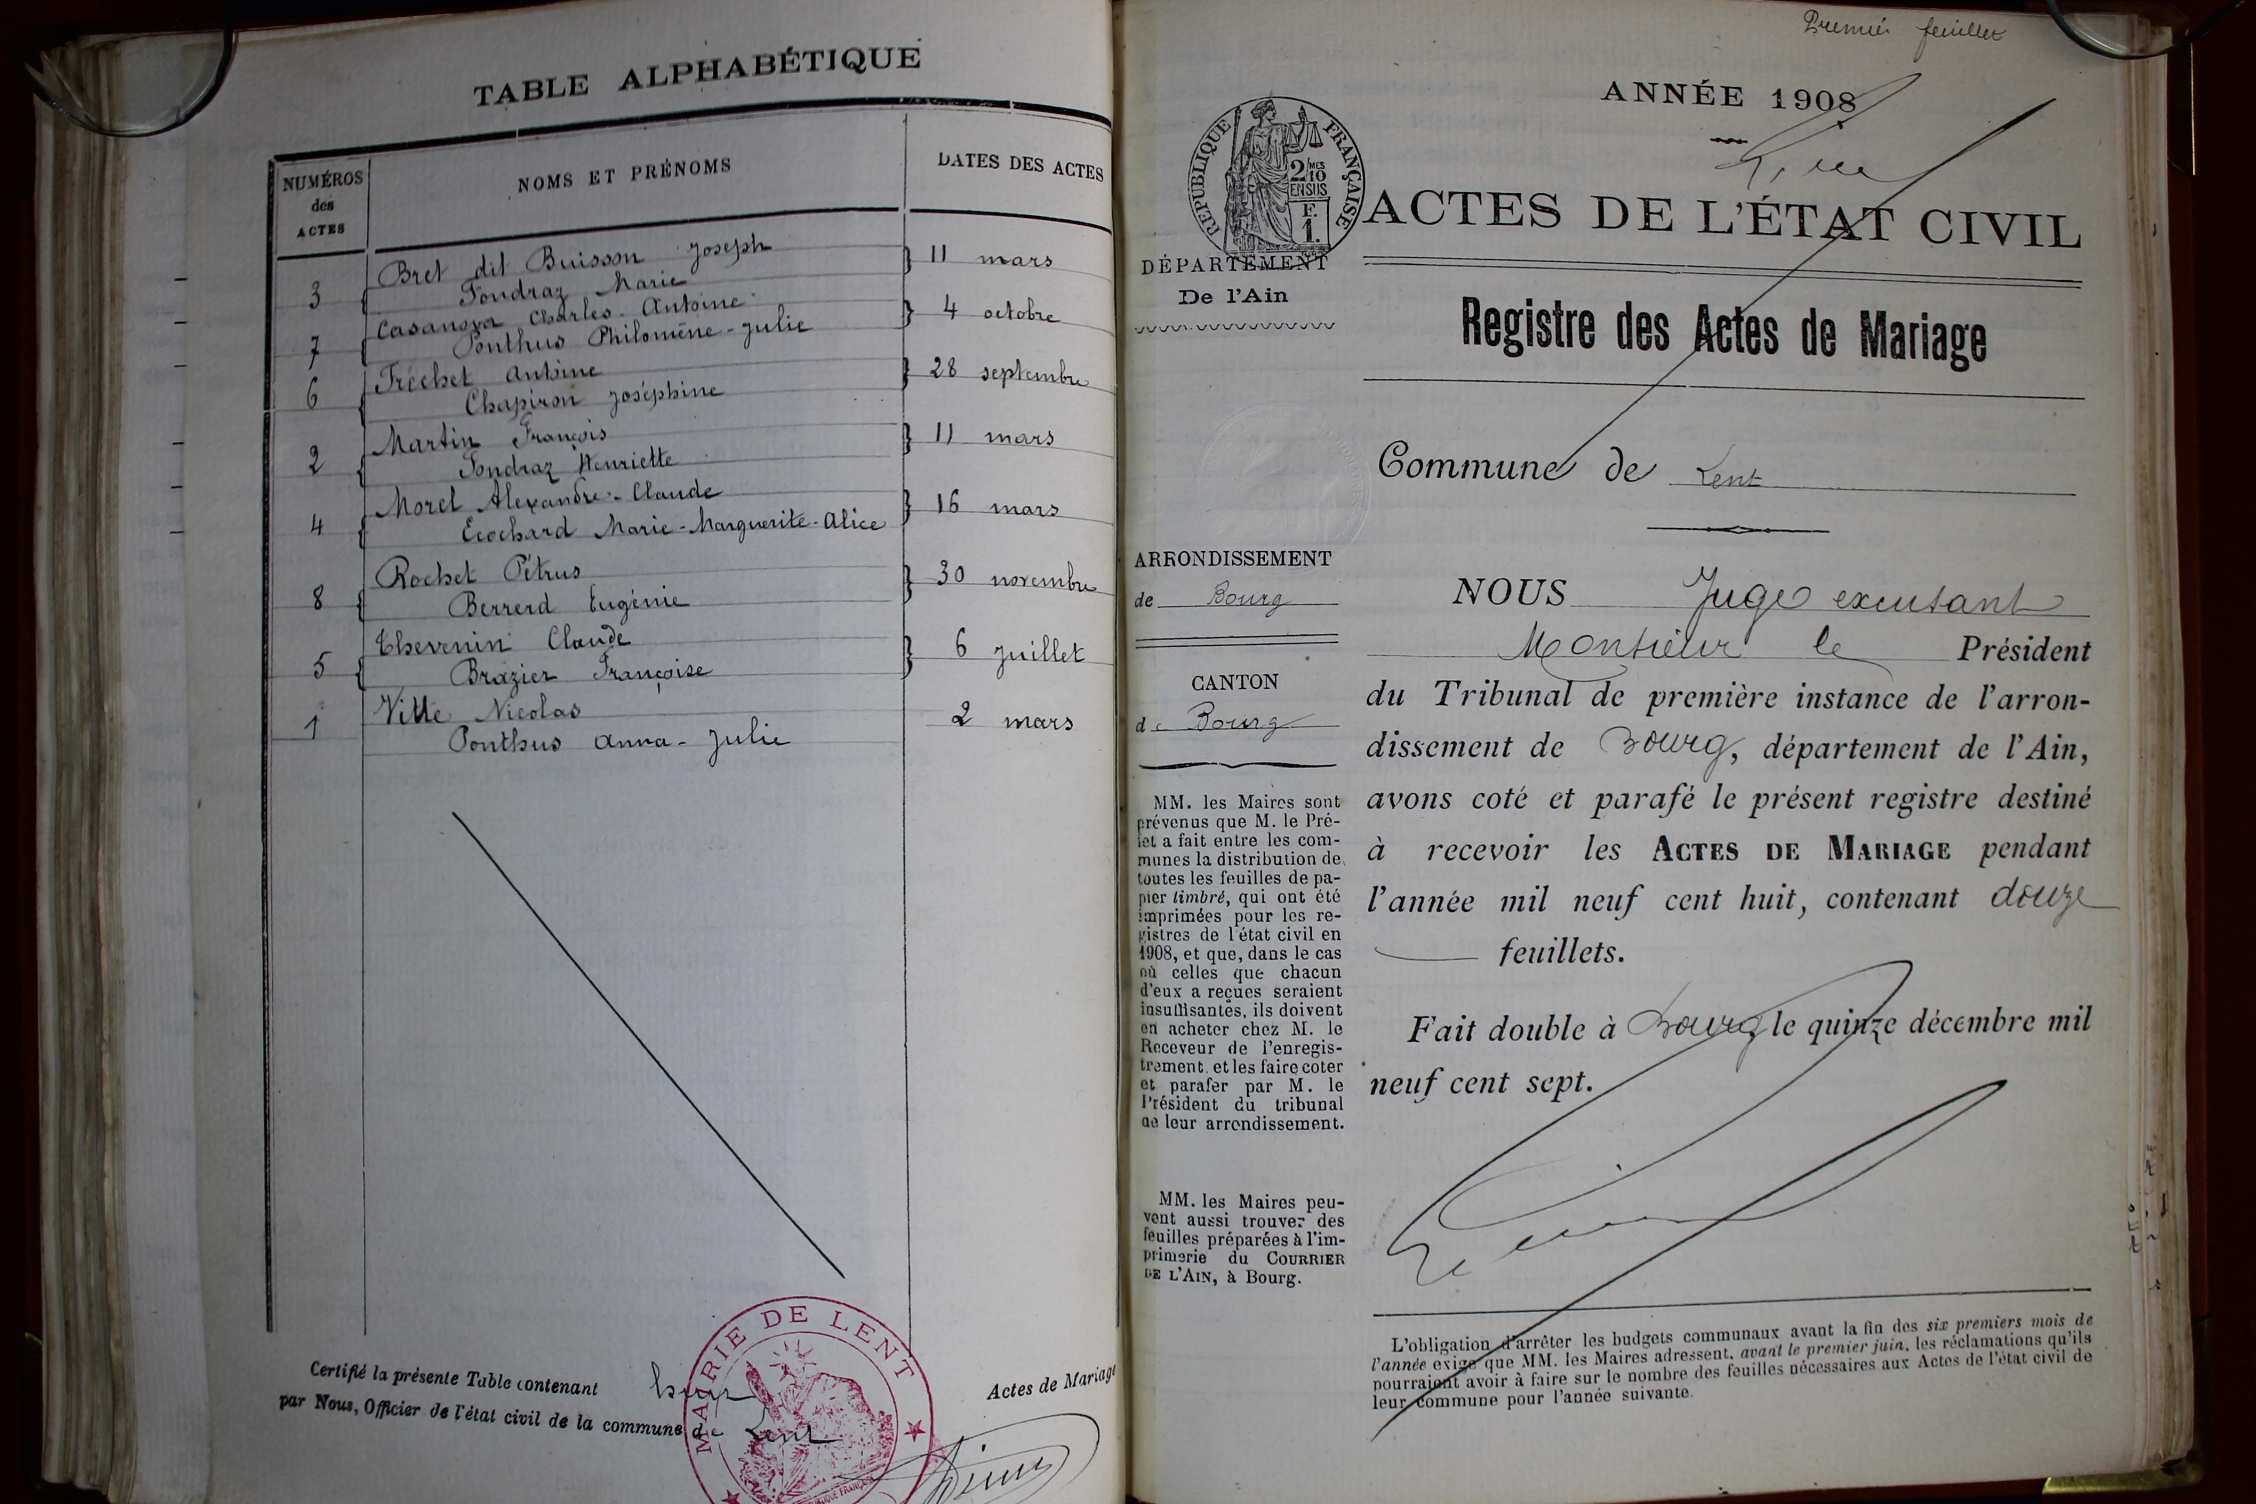 TABLE ALPHABÉTIQUE
NUMÉROS des ACTES
NOMS ET PRÉNOMS
DATES DES ACTES
3 Bret dit Buisson Joseph 11 mars
Fondraz Marie
7 Casanova Charles-Antoine 4 octobre
Ponthus Philomène-Julie
6 Fréchet Antoine 28 septembre
Chapiron Joséphine
2 Martin François 11 mars
Fondraz Henriette
4 Morel Alexandre-Claude 16 mars
Ecochard Marie-Marguerite-Alice
8 Rochet Pétrus 30 novembre
Berrerd Eugénie
5 Thevenin Claude 6 juillet
Brazier Françoise
1 Ville Nicolas 2 mars
Ponthus Anna-Julie
Certifié la présente Table contenant huit Actes de Mariage
par Nous, Officier de l'état civil de la commune de Lent
MAIRIE DE LENT
Premier feuillet
ANNÉE 1908
RÉPUBLIQUE FRANÇAISE
2/10
MES
EN SUS
F.
1.
ACTES DE L'ÉTAT CIVIL
DÉPARTEMENT
De l'Ain
Registre des Actes de Mariage
Commune de Lent
ARRONDISSEMENT
de Bourg
CANTON
de Bourg
MM. les Maires sont
prévenus que M. le Pré-
fet a fait entre les com-
munes la distribution de
toutes les feuilles de pa-
pier timbré, qui ont été
imprimées pour les re-
gistres de l'état civil en
1908, et que, dans le cas
où celles que chacun
d'eux a reçues seraient
insuffisantes, ils doivent
en acheter chez M. le
Receveur de l'enregis-
trement, et les faire coter
et parafer par M. le
Président du tribunal
de leur arrondissement.
MM. les Maires peu-
vent aussi trouver des
feuilles préparées à l'im-
primerie du COURRIER
DE L'AIN, à Bourg.
NOUS Juge excusant
Monsieur le Président
du Tribunal de première instance de l'arron-
dissement de Bourg, département de l'Ain,
avons coté et parafé le présent registre destiné
à recevoir les ACTES DE MARIAGE pendant
l'année mil neuf cent huit, contenant douze
feuillets.
Fait double à Bourg le quinze décembre mil
neuf cent sept.
L'obligation d'arrêter les budgets communaux avant la fin des six premiers mois de
l'année exige que MM. les Maires adressent, avant le premier juin, les réclamations qu'ils
pourraient avoir à faire sur le nombre des feuilles nécessaires aux Actes de l'état civil de
leur commune pour l'année suivante.